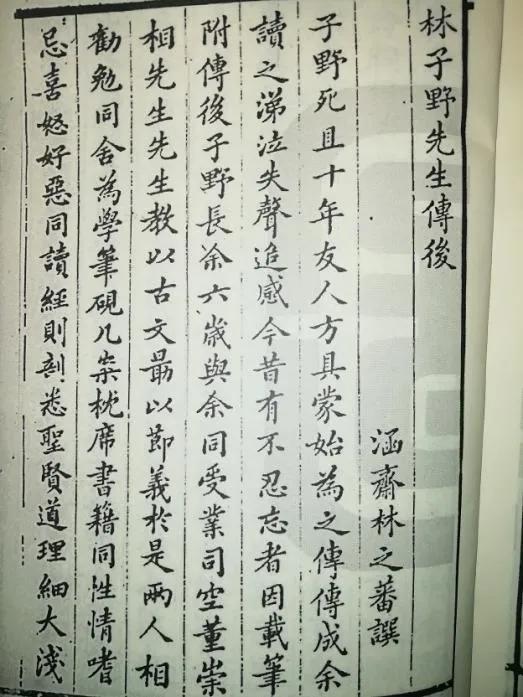 林子野先生傳後
涵齋林之蕃譔
子野死且十年友人方具蒙始為之傳傳成余
讀之涕泣失聲追感今昔有不忍忘者因載筆
附傳後子野長余六歲與余同受業司空董崇
相先生先生教以古文最以節義於是兩人相
勸勉同舍為學筆硯几案枕席書籍同性情嗜
忌喜怒好惡同讀經則剖悉聖賢道理細大淺